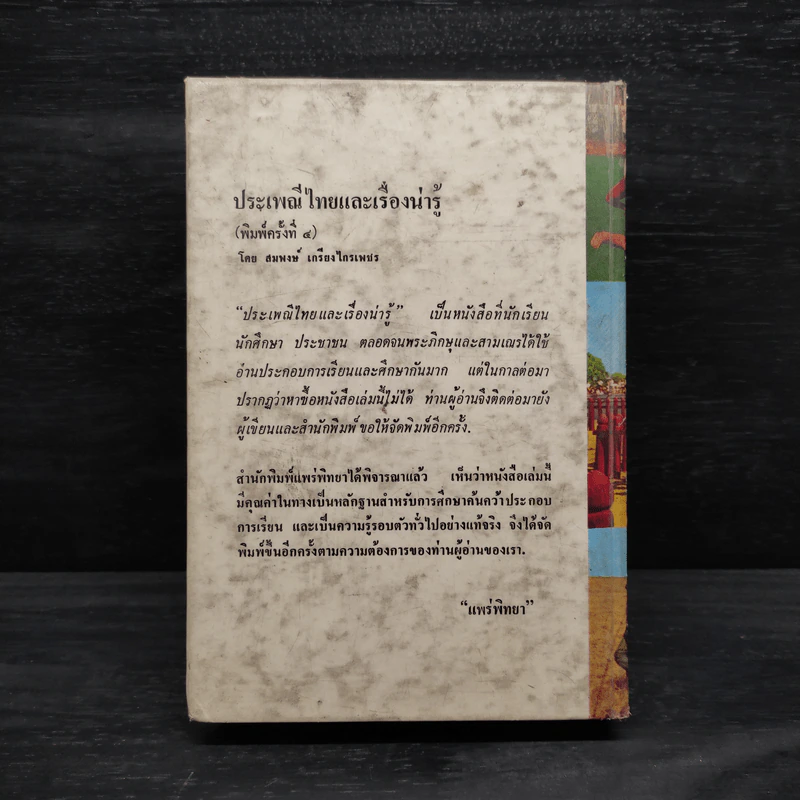 ประเพณีไทยและเรื่องน่ารู้
(พิมพ์ครั้งที่ ๔)
โดย สมพงษ์ เกรียงไกรเพชร
“ประเพณีไทยและเรื่องน่ารู้” เป็นหนังสือที่นักเรียน
นักศึกษา ประชาชน ตลอดจนพระภิกษุและสามเณรได้ใช้
อ่านประกอบการเรียนและศึกษากันมาก แต่ในกาลต่อมา
ปรากฏว่าหาซื้อหนังสือเล่มนี้ไม่ได้ ท่านผู้อ่านจึงติดต่อมายัง
ผู้เขียนและสำนักพิมพ์ ขอให้จัดพิมพ์อีกครั้ง.
สำนักพิมพ์แพร่พิทยาได้พิจารณาแล้ว เห็นว่าหนังสือเล่มนี้
มีคุณค่าในทางเป็นหลักฐานสำหรับการศึกษาค้นคว้าประกอบ
การเรียน และเป็นความรู้รอบตัวทั่วไปอย่างแท้จริง จึงได้จัด
พิมพ์ขึ้นอีกครั้งตามความต้องการของท่านผู้อ่านของเรา.
“แพร่พิทยา”